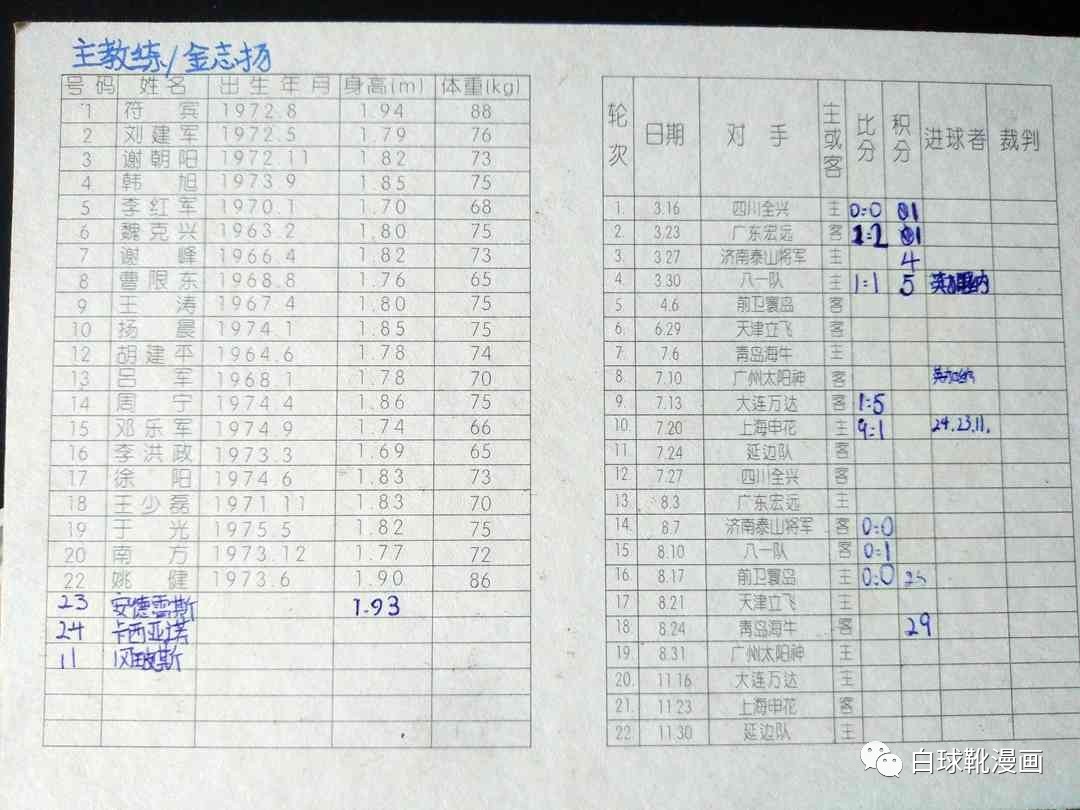 主教练/金志扬
号码 姓名 出生年月 身高(m) 体重(kg)
1 符宾 1972.8 1.94 88
2 刘建军 1972.5 1.79 76
3 谢朝阳 1972.11 1.82 73
4 韩旭 1973.9 1.85 75
5 李红军 1970.1 1.70 68
6 魏克兴 1963.2 1.80 75
7 谢峰 1966.4 1.82 73
8 曹限东 1968.8 1.76 65
9 王涛 1967.4 1.80 75
10 杨晨 1974.1 1.85 75
12 胡建平 1964.6 1.78 74
13 吕军 1968.1 1.78 70
14 周宁 1974.4 1.86 75
15 邓乐军 1974.9 1.74 66
16 李洪政 1973.3 1.69 65
17 徐阳 1974.6 1.83 73
18 王少磊 1971.11 1.83 70
19 于光 1975.5 1.82 75
20 南方 1973.12 1.77 72
22 姚健 1973.6 1.90 86
23 安德雷斯 1.93
24 卡西亚诺
11 冈波斯
轮次 日期 对手 主或客 比分 积分 进球者 裁判
1. 3.16 四川全兴 主 0:0 1
2. 3.23 广东宏远 客 1:2 1
3. 3.27 济南泰山将军 主 4
4. 3.30 八一队 主 1:1 5
5 4.6 前卫寰岛 客
6. 6.29 天津立飞 客
7. 7.6 青岛海牛 主
8. 7.10 广州太阳神 客
9. 7.13 大连万达 客 1:5
10. 7.20 上海申花 主 9:1 24.23.11.
11 7.24 延边队 客
12. 7.27 四川全兴 客
13 8.3 广东宏远 主
14. 8.7 济南泰山将军 客 0:0
15 8.10 八一队 客 0:1
16. 8.17 前卫寰岛 主 0:0
17 8.21 天津立飞 主
18. 8.24 青岛海牛 客 29
19. 8.31 广州太阳神 主
20. 11.16 大连万达 主
21. 11.23 上海申花 客
22. 11.30 延边队 主
白球靴漫画